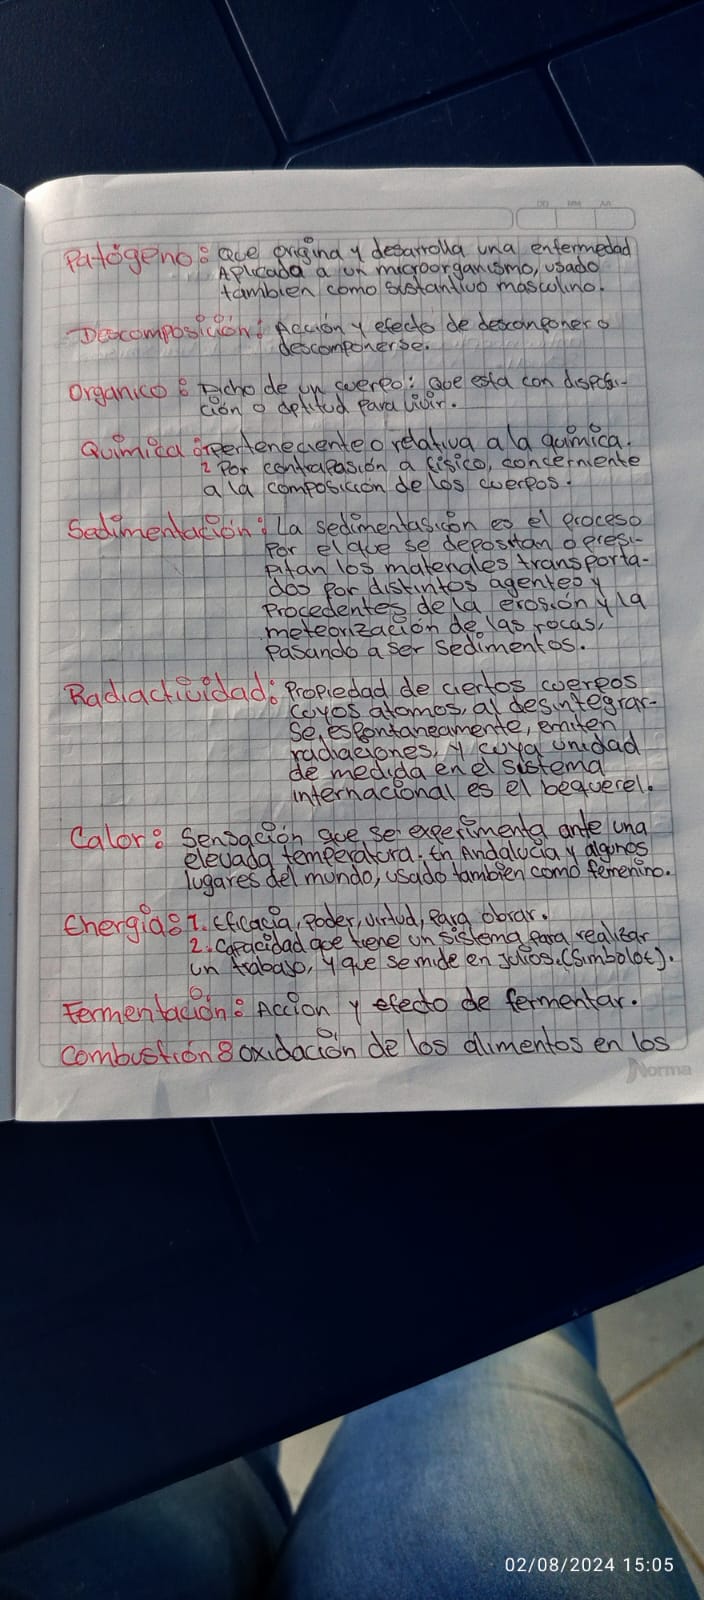 DD MM AA
Patógeno: Que origina y desarrolla una enfermedad
Aplicada a un microorganismo, usado
tambien como sustantivo masculino.
Descomposición: Acción y efecto de descomponer o
descomponerse.
Organico: Dicho de un cuerpo: que esta con disposi-
ción o aptitud para vivir.
Química: perteneciente o relativa a la química.
2 Por contraposión a físico, concerniente
a la composición de los cuerpos.
Sedimentación: La sedimentasión es el proceso
por el que se depositan o presi-
pitan los materiales transporta-
dos por distintos agentes y
procedentes de la erosión y la
meteorización de las rocas,
pasando a ser sedimentos.
Radiactividad: Propiedad de ciertos cuerpos
cuyos atomos, al desintegrar-
se, espontaneamente, emiten
radiaciones, y cuya unidad
de medida en el sistema
internacional es el bequerel.
Calor: Sensación que se experimenta ante una
elevada temperatura. En Andalucía y algunos
lugares del mundo, usado tambien como femenino.
Energía: 1. Eficacia, poder, virtud, para obrar.
2. Capacidad que tiene un sistema para realizar
un trabajo, y que se mide en julios. (Simbolo E).
Fermentación: Acción y efecto de fermentar.
Combustión: oxidación de los alimentos en los
Norma
02/08/2024 15:05